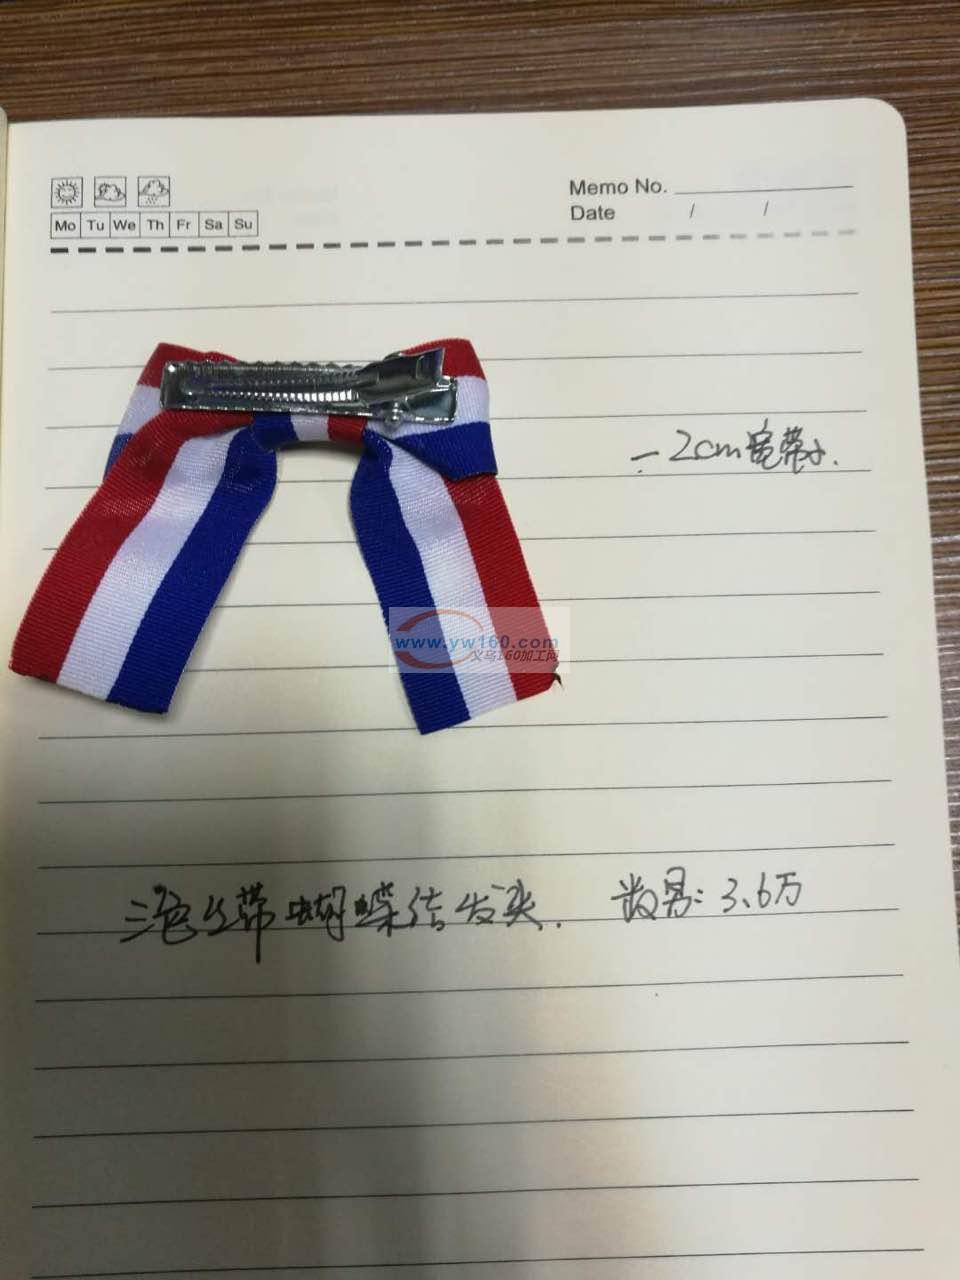 Memo No.
Mo Tu We Th Fr Sa Su
Date / /
2cm宽带子.
www.yw160.com
义乌160加工网
三色丝带蝴蝶结发夹. 数量: 3.6万